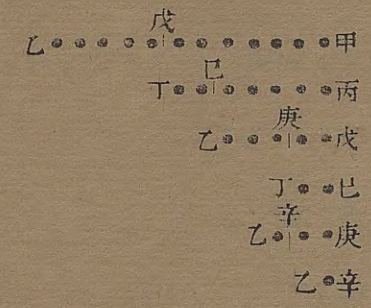 戊
乙 甲
巳
丁 丙
庚
乙 戊
丁 巳
辛
乙 庚
乙 辛